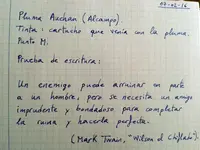 07-02-16
Pluma Auchan (Alcampo).
Tinta: cartucho que venía con la pluma.
Punto M.
Prueba de escritura:
Un enemigo puede arruinar en parte
a un hombre, pero se necesita un amigo
imprudente y bondadoso para completar
la ruina y hacerla perfecta.
(Mark Twain, "Wilson el Chiflado").